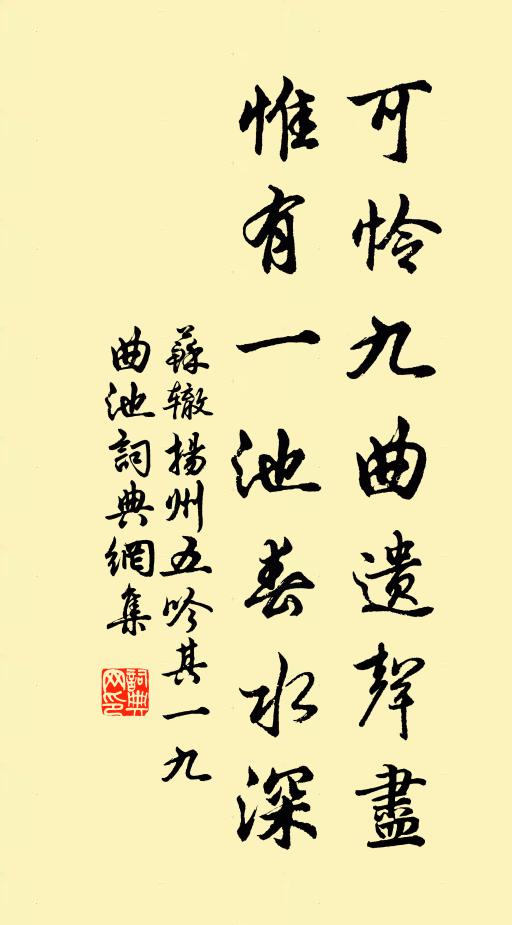 可怜九曲遗聲盡
惟有一池春水深
蘇辙揚州五吟其一九
曲池詞典網集
詞典網印